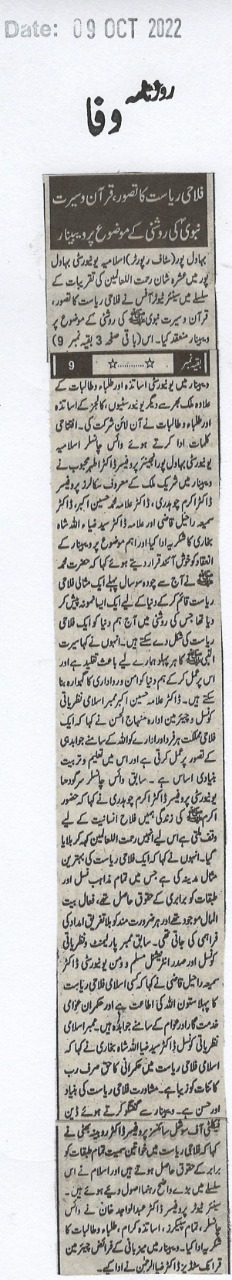 Date: 09 OCT 2022
روزنامہ
وفا
فلاحی ریاست کا تصور، قرآن و سیرت
نبویؐ کی روشنی کے موضوع پر ویبینار
بہاول پور (سٹاف رپورٹر) اسلامیہ یونیورسٹی بہاول
پور میں عشرہ شان رحمت اللعالمین کی تقریبات کے
سلسلے میں سینئر ٹیوٹر آفس نے فلاحی ریاست کا تصور،
قرآن و سیرت نبوی ﷺ کی روشنی کے موضوع پر
ویبینار منعقد کیا۔ اس (باقی صفحہ 3 بقیہ نمبر 9)
9 ☆............☆ بقیہ نمبر
ویبینار میں یونیورسٹی اساتذہ اور طلباء و طالبات کے
علاوہ ملک بھر سے دیگر یونیورسٹیوں، کالجز کے اساتذہ
اور طلباء و طالبات نے آن لائن شرکت کی۔ افتتاحی
کلمات ادا کرتے ہوئے وائس چانسلر اسلامیہ
یونیورسٹی بہاول پور انجینئر پروفیسر ڈاکٹر اطہر محبوب نے
ویبینار میں شریک ملک کے معروف سکالرز پروفیسر
ڈاکٹر اکرم چوہدری، ڈاکٹر علامہ محمد حسین اکبر، ڈاکٹر
سمیحہ راحیل قاضی اور علامہ ڈاکٹر سید ضیاء اللہ شاہ
بخاری کا شکریہ ادا کیا اور اہم موضوع پر ویبینار کے
انعقاد کو خوش آئند قرار دیتے ہوئے کہا کہ حضرت محمد
ﷺ نے آج سے چودہ سو سال پہلے ایک مثالی فلاحی
ریاست قائم کر کے دنیا کے لیے ایک ایسا نمونہ پیش کر
دیا تھا جس کی روشنی میں آج ہم دنیا کو ایک فلاحی
ریاست کی شکل دے سکتے ہیں۔ انہوں نے کہا سیرت
النبی ﷺ کا ہر پہلو ہمارے لیے باعث تقلید ہے اور
اس پر عمل کر کے ہم دنیا کو امن و رواداری کا گہوارہ بنا
سکتے ہیں۔ ڈاکٹر علامہ حسین اکبر ممبر اسلامی نظریاتی
کونسل و چیئرمین ادارہ منہاج الحسین نے کہا کہ ایک
فلاحی مملکت ہر فرد اور ادارے کو اللہ کے سامنے جوابدہی
کے تصور پر عمل کرتی ہے اور اس میں تعلیم و تربیت
بنیادی اساس ہے۔ سابق وائس چانسلر سرگودھا
یونیورسٹی پروفیسر ڈاکٹر اکرم چوہدری نے کہا کہ حضور
اکرم ﷺ کی زندگی ہمیں فلاح انسانیت کے لیے
وقف ملتی ہے اس لیے انہیں رحمت اللعالمین کہہ کر بلایا
گیا۔ انہوں نے کہا کہ ایک فلاحی ریاست کی بہترین
مثال مدینہ کی ہے جس میں تمام مذاہب نسل اور
طبقات کو برابری کے حقوق حاصل تھے، فعال بیت
المال موجود تھے اور ہر ضرورت مند کو بلا تفریق امداد کی
فراہمی کی جاتی تھی۔ سابق ممبر پارلیمنٹ و نظریاتی
کونسل اور صدر انٹرنیشنل مسلم وومن یونین ڈاکٹر
سمیحہ راحیل قاضی نے کہا کہ کسی اسلامی فلاحی ریاست
کا پہلا ستون اللہ کی اطاعت ہے اور حکمران عوامی
خدمت گار اور عوام کے سامنے جوابدہ ہیں۔ ممبر اسلامی
نظریاتی کونسل ڈاکٹر سید ضیاء اللہ شاہ بخاری نے کہا کہ
اسلامی فلاحی ریاست میں حکمرانی کا حق صرف رب
کائنات کو زیبا ہے۔ مشاورت فلاحی ریاست کی بنیاد
اور حسن ہے۔ ویبینار سے گفتگو کرتے ہوئے ڈین
فیکلٹی آف سوشل سائنسز پروفیسر ڈاکٹر روبینہ بھٹی نے
کہا کہ فلاحی ریاست میں خواتین سمیت تمام طبقات کو
برابر کے حقوق حاصل ہوتے ہیں اور اسلام نے اس
سلسلے میں بڑے واضح رہنما اصول دیئے ہوئے ہیں۔
سینئر ٹیوٹر پروفیسر ڈاکٹر عبدالواجد خان نے وائس
چانسلر، تمام سپیکرز، اساتذہ کرام، طلباء و طالبات کا
شکریہ ادا کیا۔ ویبینار میں میزبانی کے فرائض چیئرمین
قرآنک سٹڈیز ڈاکٹر ضیاء الرحمن نے ادا کیے۔